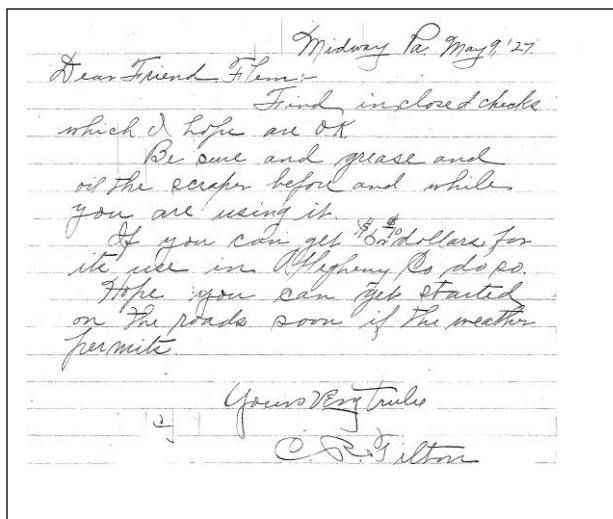 Midway Pa. May 9, '27.
Dear Friend Flem:-
Find inclosed checks
which I hope are O.K
Be sure and grease and
oil the scraper before and while
you are using it.
If you can get dollars for
its use in Allegheny Co do so.
Hope you can get started
on the roads soon if the weather
permits.
Yours Very trulie
C. R. Tilton